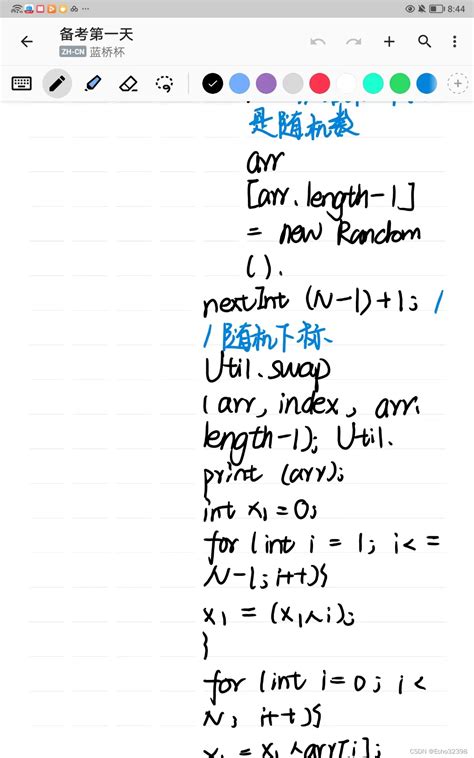 8:44
备考第一天
ZH-CN 蓝桥杯
是随机数
arr
[arr.length-1]
= new Random
().
nextInt (N-1)+1; /
/ 随机下标
Util.swap
(arr, index, arr.
length-1); Util.
print (arr);
}
int x1=0;
for (int i = 1; i< =
N-1; i++){
x1 = (x1^i);
}
for (int i=0; i<
N; i++){
x1 = x1^arr[i];
CSDN @Echo32396